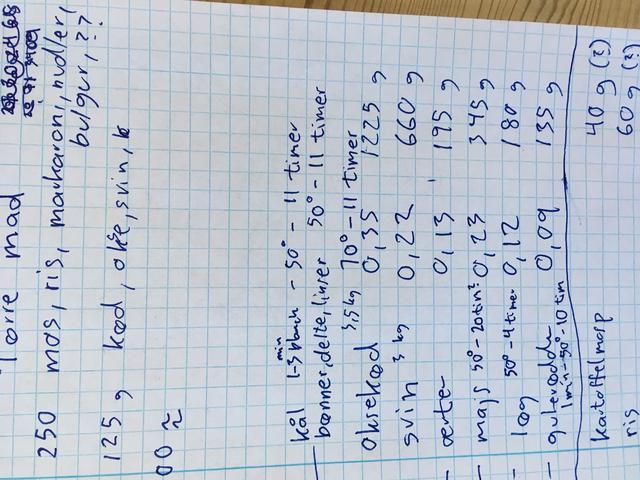 Tørre mad
250 mos, ris, markaroni, nudler,
bulgur, ??
125 g kød, okse, svin, k
00 ≈
min
kål 1-3 blanch - 50° - 11 timer
bønner, delte, linser 50° - 11 timer
3,5 kg 70° - 11 timer
oksekød 0,35 1225 g
svin 3 kg 0,22 660 g
- ærter 0,13 195 g
- majs 50° - 20 tim 0,23 345 g
- løg 50° - 4 timer 0,12 180 g
- gulerødder 0,09 135 g
1 min - 50° - 10 tim
kartoffelmosp 40 g (?)
ris 60 g (?)